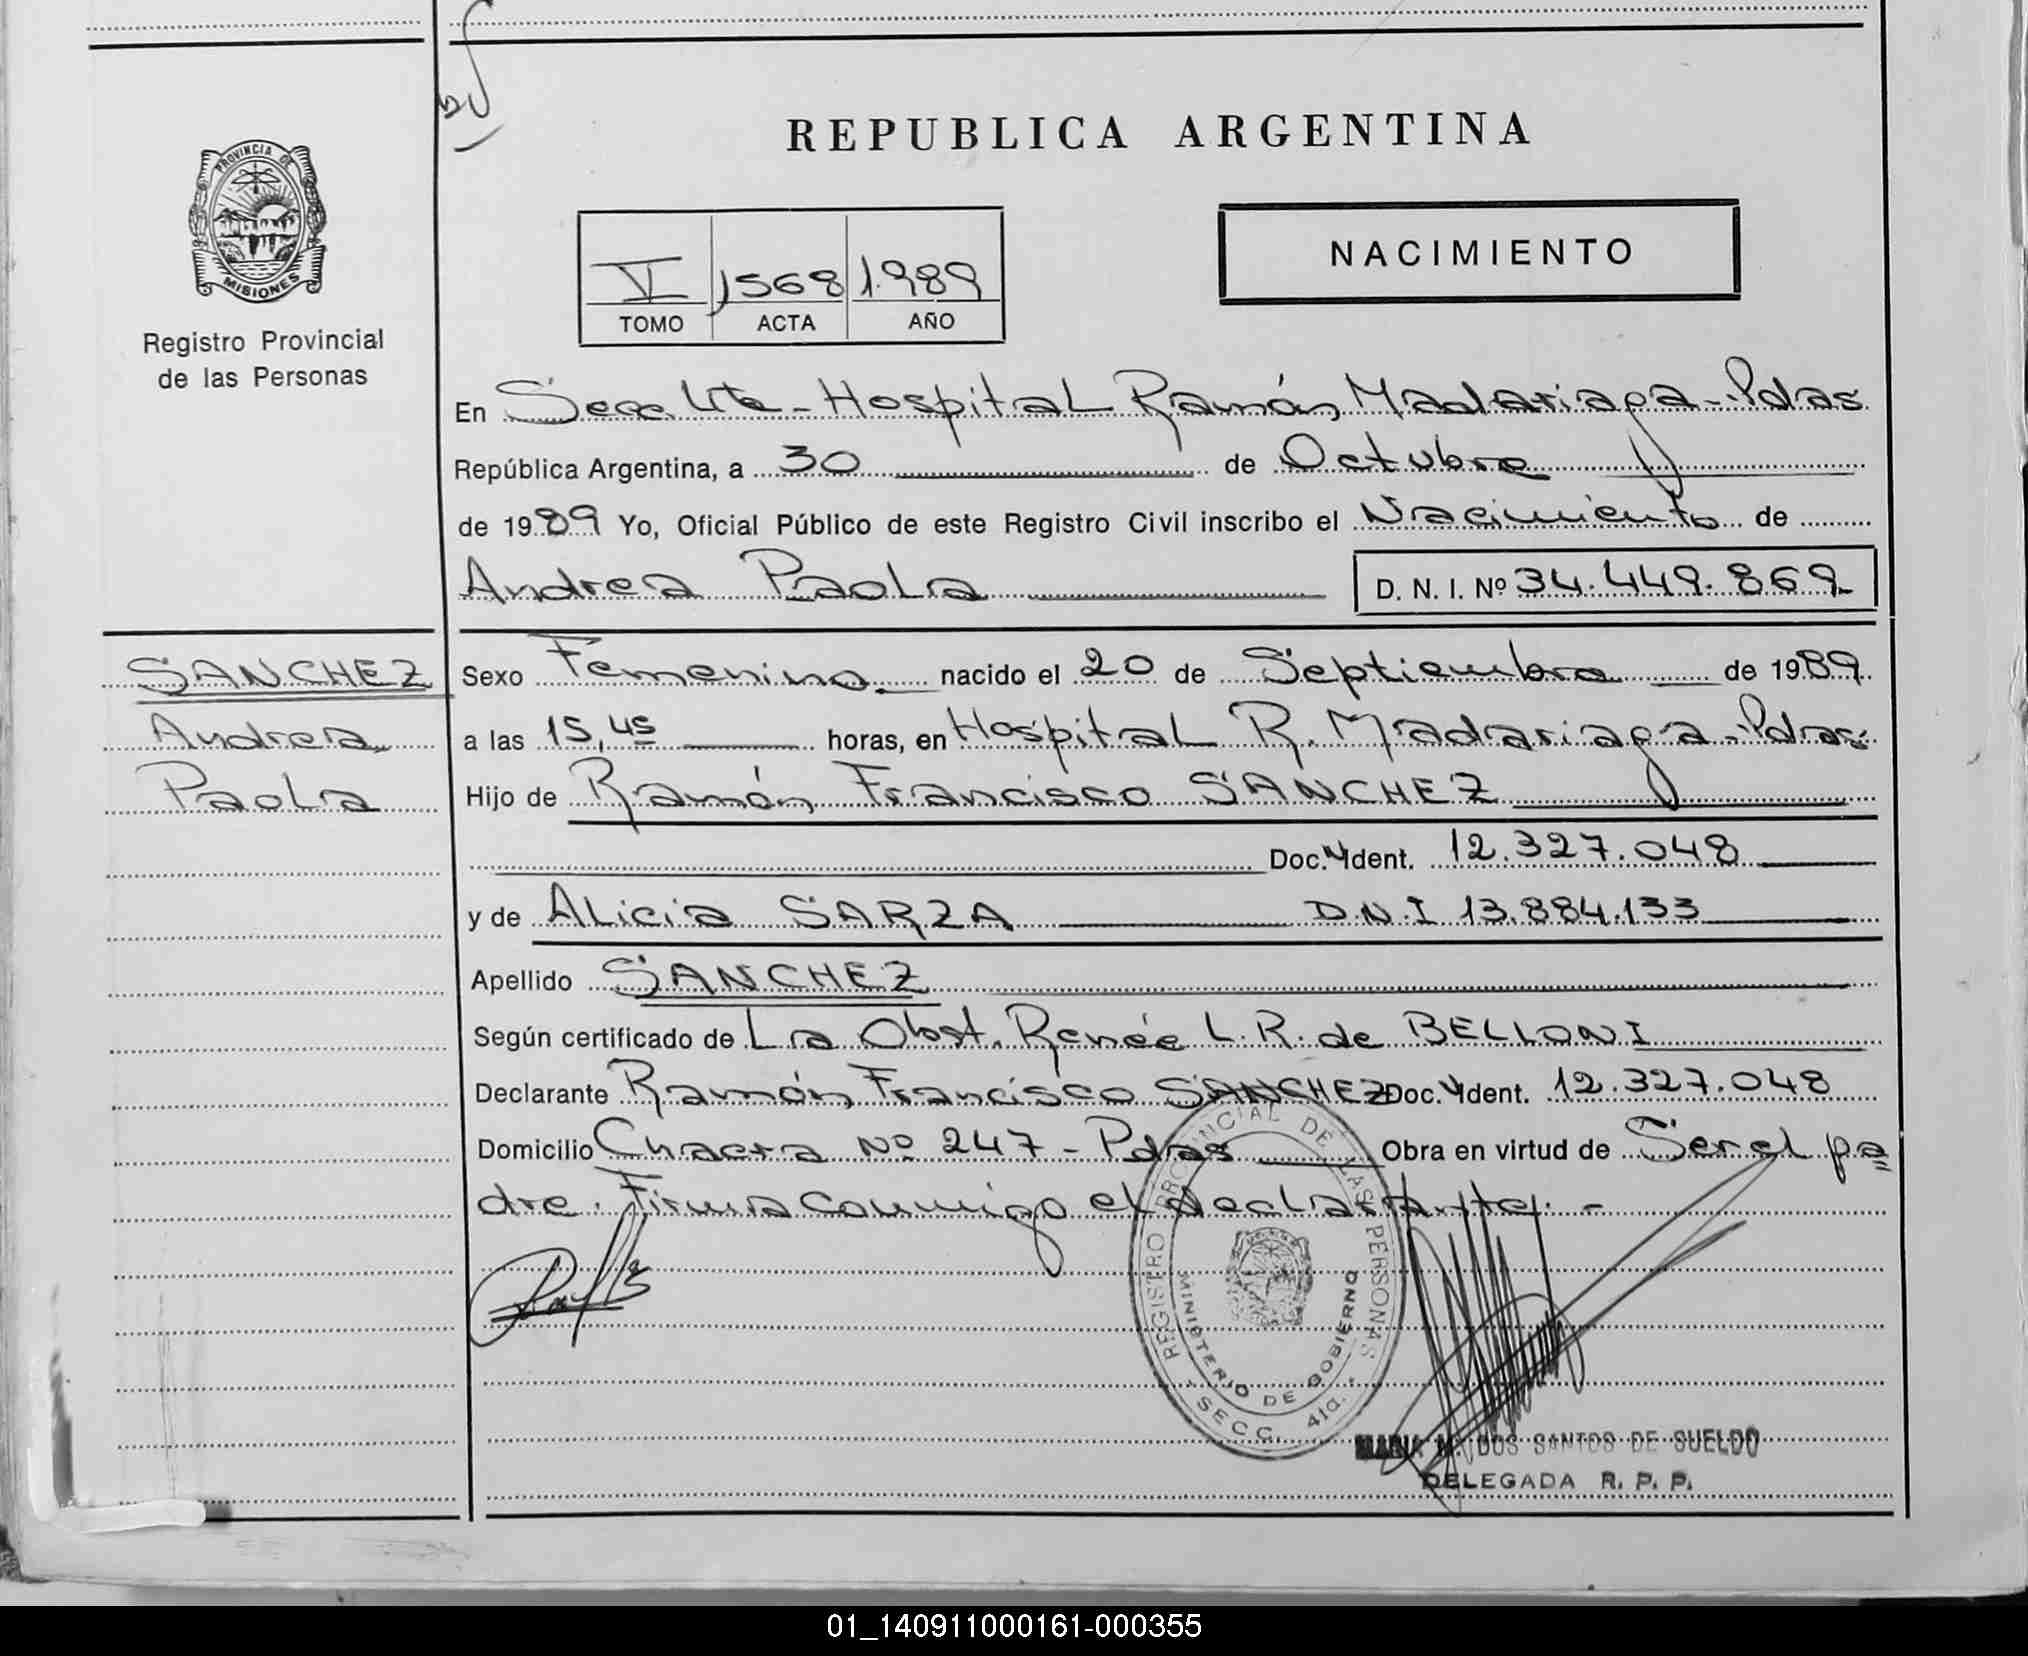 REPUBLICA ARGENTINA
PROVINCIA DE MISIONES
Registro Provincial
de las Personas
NACIMIENTO
VI 1568 1.989
TOMO ACTA AÑO
En Secc. 41a - Hospital Ramón Madariaga - Pdas
República Argentina, a 30 de Octubre
de 1989 Yo, Oficial Público de este Registro Civil inscribo el Nacimiento de
Andrea Paola D. N. I. Nº 34.449.869
SANCHEZ
Andrea
Paola
Sexo Femenino nacido el 20 de Septiembre de 1989
a las 15,45 horas, en Hospital R. Madariaga - Pdas
Hijo de Ramón Francisco SANCHEZ
Doc. Ident. 12.327.048
y de Alicia SARZA D.N.I 13.884.133
Apellido SANCHEZ
Según certificado de La Obst. Renée L. R. de BELLONI
Declarante Ramón Francisco SANCHEZ Doc. Ident. 12.327.048
Domicilio Chacra Nº 247 - Pdas Obra en virtud de Ser el pa=
dre. Firma conmigo el declarante. -
REGISTRO PROVINCIAL DE LAS PERSONAS
MINISTERIO DE GOBIERNO
SECC. 41a.
MARIA M. DOS SANTOS DE SUELDO
DELEGADA R. P. P.
01_140911000161-000355